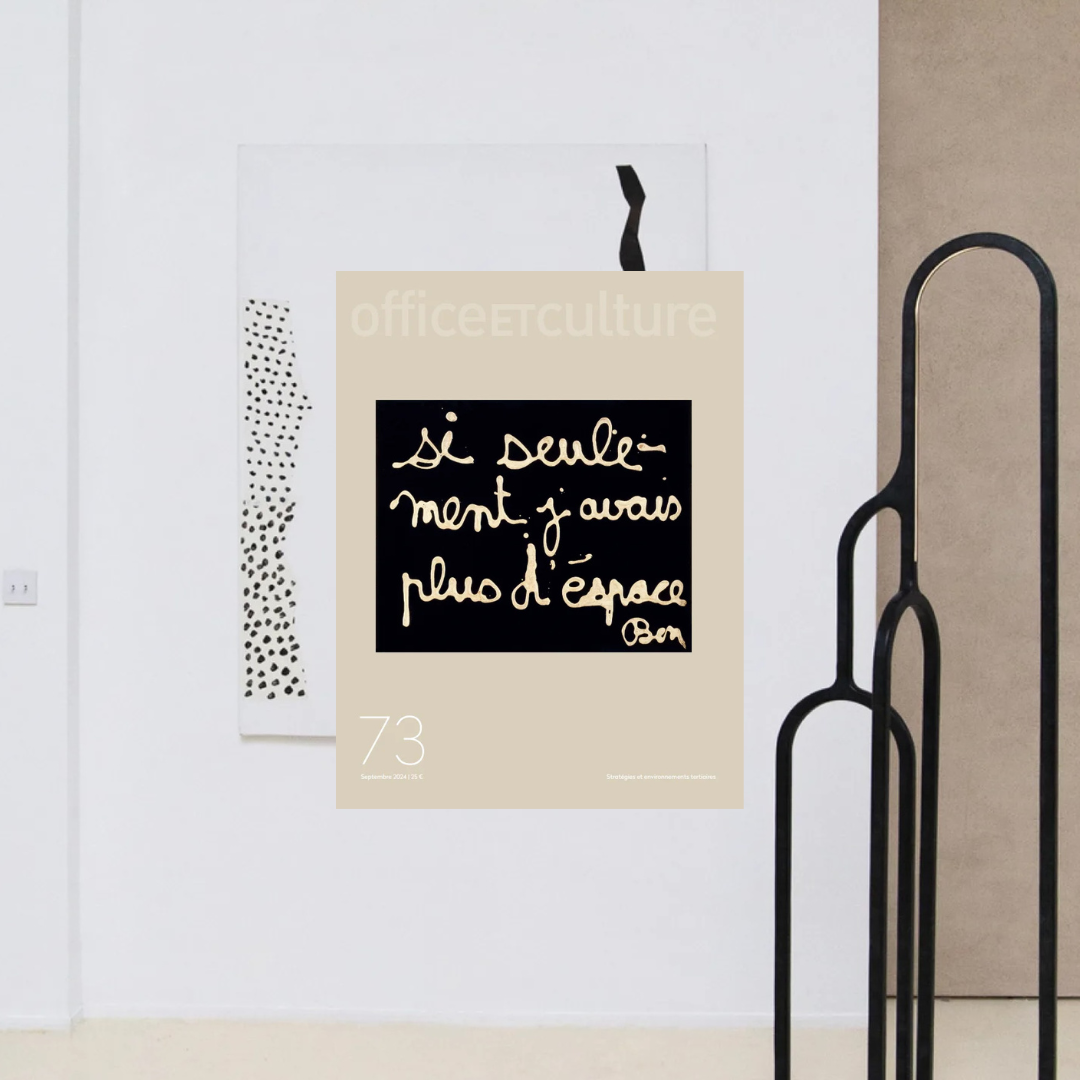 officeETculture
si seule-
ment j'avais
plus d'éspace
Ben
73
Septembre 2024 | 35 €
Stratégies et environnements tertiaires